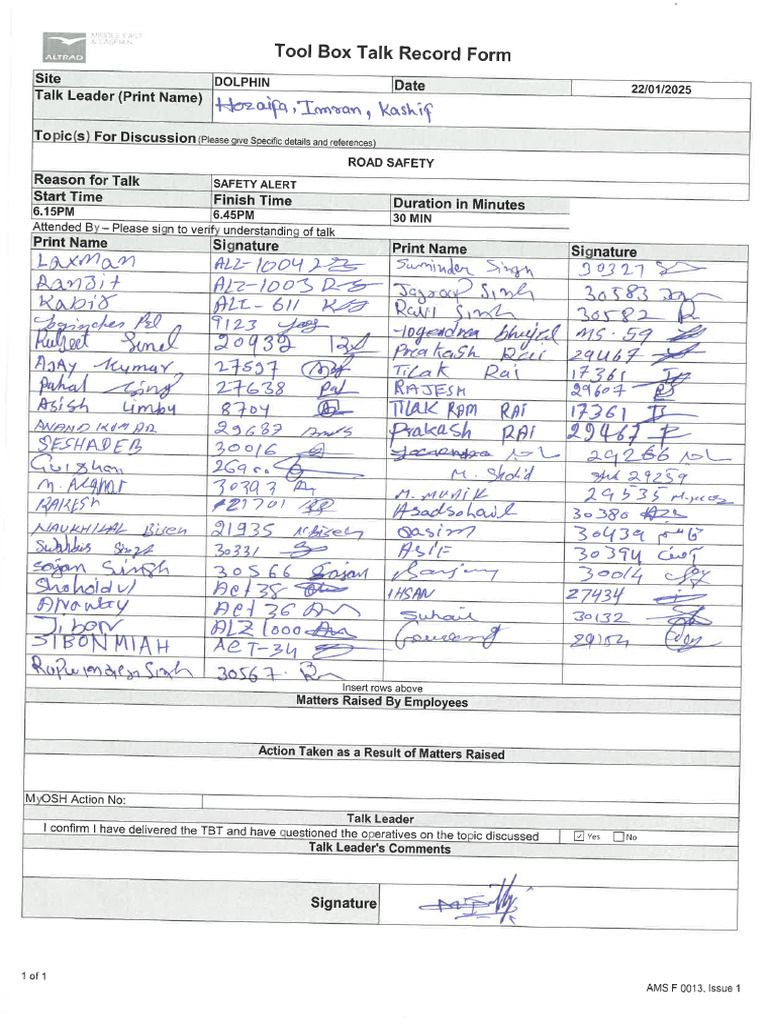 MIDDLE EAST
& CASPIAN
ALTRAD
Tool Box Talk Record Form
Site DOLPHIN Date 22/01/2025
Talk Leader (Print Name) Hozaifa, Imran, Kashif
Topic(s) For Discussion (Please give Specific details and references)
ROAD SAFETY
Reason for Talk SAFETY ALERT
Start Time Finish Time Duration in Minutes
6.15PM 6.45PM 30 MIN
Attended By – Please sign to verify understanding of talk
Print Name Signature Print Name Signature
Laxman ALZ-1004 Suminder Singh 30327
Ranjit ALZ-1003 Jagroop Singh 30583
Kabir ALI-611 Ravi Singh 30582 R
Joginder Pal 9123 Yogendra bhujel MS-59
20932 Prakash Rai 29467
AJAY Kumar 27597 Tilak Rai 17361
Pahal Sing 27638 Pal RAJESH 29607
Asish Limbu 8704 TILAK RAM RAI 17361
ANAND KUMAR 29687 Prakash RAI 29467
SESHADEB 30016 29266
Gulshan M. Shahid 29259
30393 M. MUNIK 29535
RAKESH 21701 Asadsohail 30380
NAUKHILAL Bisen 21935 N Bisen Qasim 30439
30331 ASIF 30394
Sajan Singh 30566 Sajan Sanjay 30014
Shohidul ACT 38 IHSAN 27434
ACT 36 Suhail 30132
Jibon ALZ 1000
SIBON MIAH ACT-34
Rupwinder Singh 30567
Insert rows above
Matters Raised By Employees
Action Taken as a Result of Matters Raised
MyOSH Action No:
Talk Leader
I confirm I have delivered the TBT and have questioned the operatives on the topic discussed Yes No
Talk Leader's Comments
Signature
1 of 1
AMS F 0013, Issue 1